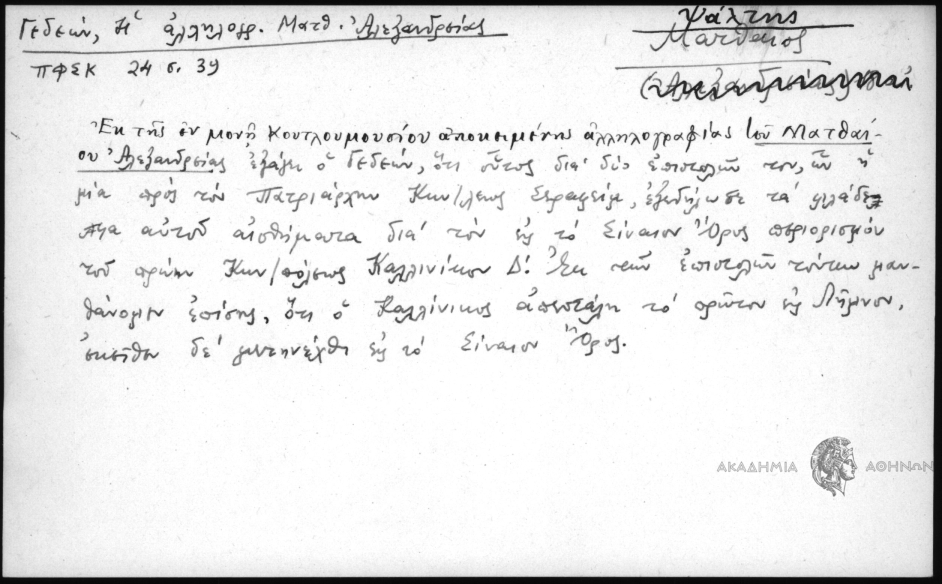 Γεδεών, Ἡ ἀλληλογρ. Ματθ. Ἀλεξανδρείας
ΠΦΣΚ 24 σ. 39
Ψάλτης
Ματθαίος
Ἐκ τῆς ἐν μονῇ Κουτλουμουσίου ἀποκειμένης ἀλληλογραφίας τοῦ Ματθαί-
ου Ἀλεξανδρείας ἐξάγει ὁ Γεδεών, ὅτι οὗτος διά δύο ἐπιστολῶν του, ὧν ἡ
μία πρός τόν Πατριάρχην Κων/λεως Σεραφείμ, ἐξεδήλωσε τά φιλάδελ
φα αὐτοῦ αἰσθήματα διά τόν εἰς τό Σίναιον Ὄρος περιορισμόν
τοῦ πρώην Κων/πόλεως Καλλινίκου Δ΄. Ἐκ τῶν ἐπιστολῶν τούτων μαν-
θάνομεν ἐπίσης, ὅτι ὁ Καλλίνικος ἀπεστάλη τό πρῶτον εἰς Λῆμνον,
ἐκεῖθεν δέ μετηνέχθη εἰς τό Σίναιον Ὄρος.
ΑΚΑΔΗΜΙΑ ΑΘΗΝΩΝ